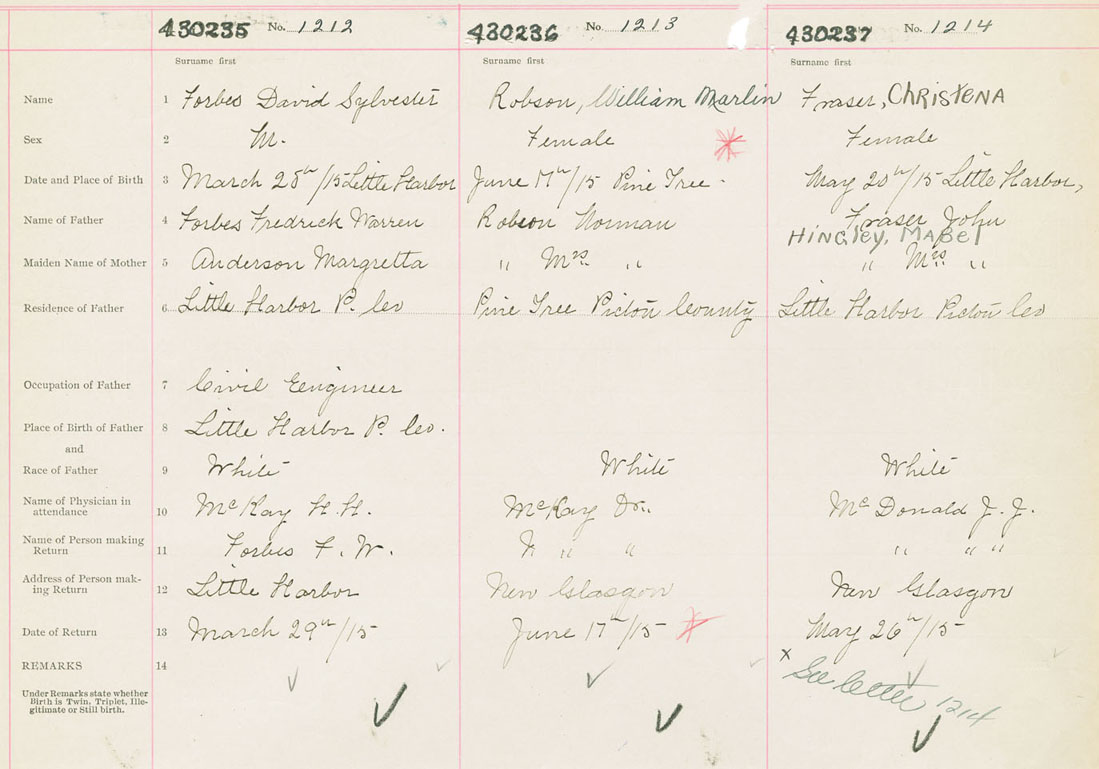 430235 No. 1212 430236 No. 1213 430237 No. 1214
Surname first Surname first Surname first
Name 1 Forbes David Sylvester Robson, William Marlin Fraser, CHRISTENA
Sex 2 M. Female Female
Date and Place of Birth 3 March 28th/15 Little Harbor June 17th/15 Pine Tree - May 20th/15 Little Harbor,
Name of Father 4 Forbes Fredrick Warren Robson Norman Fraser John
HINGley, MABEl
Maiden Name of Mother 5 Anderson Margretta " Mrs. " " Mrs. "
Residence of Father 6 Little Harbor P. Co Pine Tree Pictou County Little Harbor Pictou Co
Occupation of Father 7 Civil Eengineer
Place of Birth of Father 8 Little Harbor P. Co.
and
Race of Father 9 White White White
Name of Physician in
attendance 10 McKay H. H. McKay Dr. McDonald J. J.
Name of Person making
Return 11 Forbes F. W. " " " " "
Address of Person mak-
ing Return 12 Little Harbor New Glasgow New Glasgow
Date of Return 13 March 29th/15 June 17th/15 May 26th/15
REMARKS 14 x See letter 1214
Under Remarks state whether
Birth is Twin, Triplet, Ille-
gitimate or Still birth.